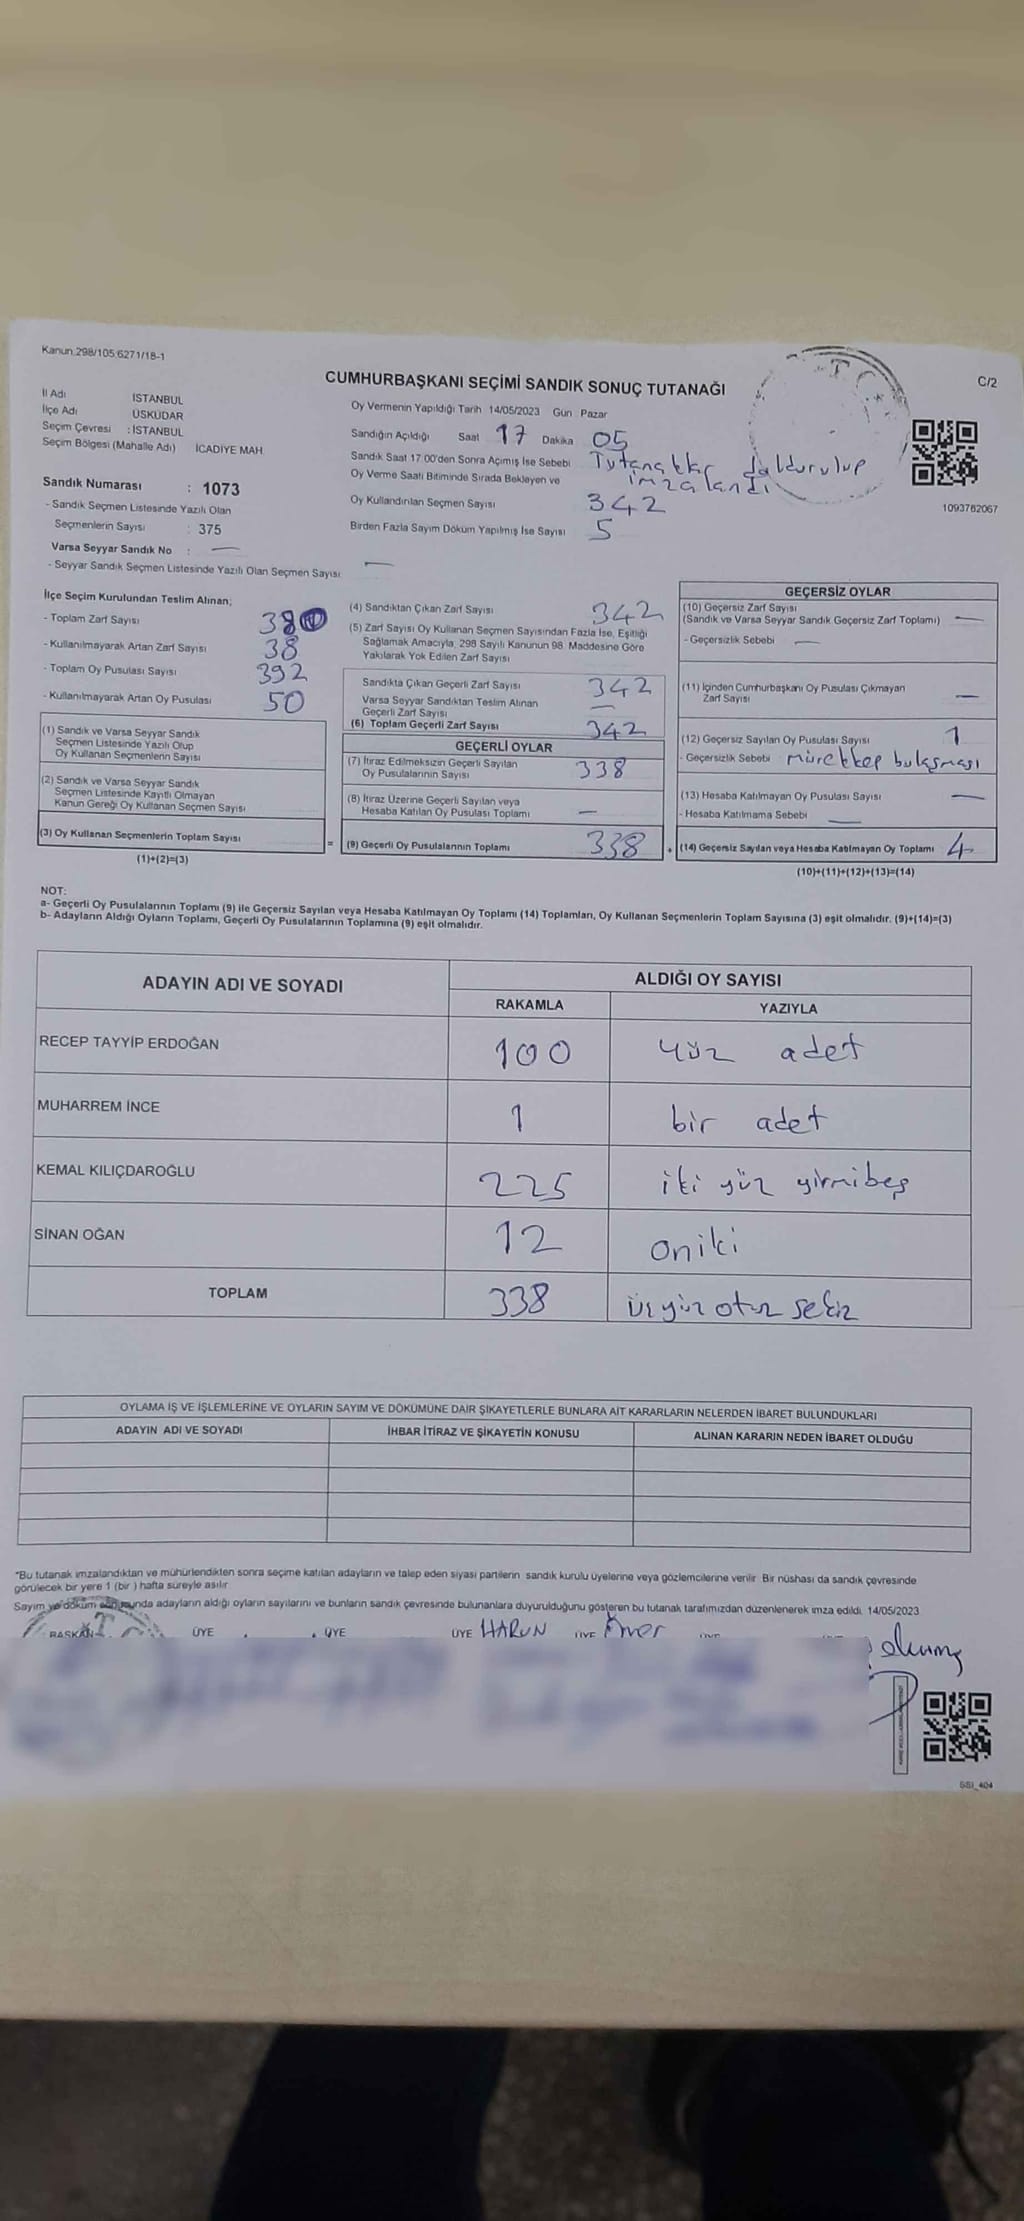 Kanun 298/105 6271/18-1
C/2
CUMHURBAŞKANI SEÇİMİ SANDIK SONUÇ TUTANAĞI
T.C.
İl Adı İSTANBUL
İlçe Adı ÜSKÜDAR
Seçim Çevresi : İSTANBUL
Seçim Bölgesi (Mahalle Adı) İCADİYE MAH
Sandık Numarası : 1073
- Sandık Seçmen Listesinde Yazılı Olan
Seçmenlerin Sayısı : 375
Varsa Seyyar Sandık No : —
- Seyyar Sandık Seçmen Listesinde Yazılı Olan Seçmen Sayısı —
Oy Vermenin Yapıldığı Tarih 14/05/2023 Gün Pazar
Sandığın Açıldığı Saat 17 Dakika 05
Sandık Saat 17:00'den Sonra Açımış İse Sebebi Tutanaklar doldurulup
Oy Verme Saati Bitiminde Sırada Bekleyen ve imzalandı
Oy Kullandırılan Seçmen Sayısı 342
Birden Fazla Sayım Döküm Yapılmış İse Sayısı 5
1093762067
İlçe Seçim Kurulundan Teslim Alınan;
- Toplam Zarf Sayısı 380
- Kullanılmayarak Artan Zarf Sayısı 38
- Toplam Oy Pusulası Sayısı 392
- Kullanılmayarak Artan Oy Pusulası 50
(1) Sandık ve Varsa Seyyar Sandık
Seçmen Listesinde Yazılı Olup
Oy Kullanan Seçmenlerin Sayısı
(2) Sandık ve Varsa Seyyar Sandık
Seçmen Listesinde Kayıtlı Olmayan
Kanun Gereği Oy Kullanan Seçmen Sayısı
(3) Oy Kullanan Seçmenlerin Toplam Sayısı =
(1)+(2)=(3)
(4) Sandıktan Çıkan Zarf Sayısı 342
(5) Zarf Sayısı Oy Kullanan Seçmen Sayısından Fazla İse, Eşitliği
Sağlamak Amacıyla, 298 Sayılı Kanunun 98. Maddesine Göre
Yakılarak Yok Edilen Zarf Sayısı
Sandıkta Çıkan Geçerli Zarf Sayısı 342
Varsa Seyyar Sandıktan Teslim Alınan —
Geçerli Zarf Sayısı
(6) Toplam Geçerli Zarf Sayısı 342
GEÇERLİ OYLAR
(7) İtiraz Edilmeksizin Geçerli Sayılan 338
Oy Pusulalarının Sayısı
(8) İtiraz Üzerine Geçerli Sayılan veya
Hesaba Katılan Oy Pusulası Toplamı —
(9) Geçerli Oy Pusulalarının Toplamı 338 +
GEÇERSİZ OYLAR
(10) Geçersiz Zarf Sayısı
(Sandık ve Varsa Seyyar Sandık Geçersiz Zarf Toplamı) —
- Geçersizlik Sebebi —
(11) İçinden Cumhurbaşkanı Oy Pusulası Çıkmayan
Zarf Sayısı —
(12) Geçersiz Sayılan Oy Pusulası Sayısı 1
- Geçersizlik Sebebi mürekkep bulaşması
(13) Hesaba Katılmayan Oy Pusulası Sayısı —
- Hesaba Katılmama Sebebi —
(14) Geçersiz Sayılan veya Hesaba Katılmayan Oy Toplamı 4
(10)+(11)+(12)+(13)=(14)
NOT:
a- Geçerli Oy Pusulalarının Toplamı (9) ile Geçersiz Sayılan veya Hesaba Katılmayan Oy Toplamı (14) Toplamları, Oy Kullanan Seçmenlerin Toplam Sayısına (3) eşit olmalıdır. (9)+(14)=(3)
b- Adayların Aldığı Oyların Toplamı, Geçerli Oy Pusulalarının Toplamına (9) eşit olmalıdır.
ADAYIN ADI VE SOYADI ALDIĞI OY SAYISI
RAKAMLA YAZIYLA
RECEP TAYYİP ERDOĞAN 100 yüz adet
MUHARREM İNCE 1 bir adet
KEMAL KILIÇDAROĞLU 225 iki yüz yirmibeş
SİNAN OĞAN 12 oniki
TOPLAM 338 üçyüz otuz sekiz
OYLAMA İŞ VE İŞLEMLERİNE VE OYLARIN SAYIM VE DÖKÜMÜNE DAİR ŞİKAYETLERLE BUNLARA AİT KARARLARIN NELERDEN İBARET BULUNDUKLARI
ADAYIN ADI VE SOYADI İHBAR İTİRAZ VE ŞİKAYETİN KONUSU ALINAN KARARIN NEDEN İBARET OLDUĞU
*Bu tutanak imzalandıktan ve mühürlendikten sonra seçime katılan adayların ve talep eden siyasi partilerin sandık kurulu üyelerine veya gözlemcilerine verilir. Bir nüshası da sandık çevresinde
görülecek bir yere 1 (bir ) hafta süreyle asılır
Sayım ve döküm sonucunda adayların aldığı oyların sayılarını ve bunların sandık çevresinde bulunanlara duyurulduğunu gösteren bu tutanak tarafımızdan düzenlenerek imza edildi. 14/05/2023
BAŞKAN ÜYE ÜYE ÜYE HARUN ÜYE
SSI_404